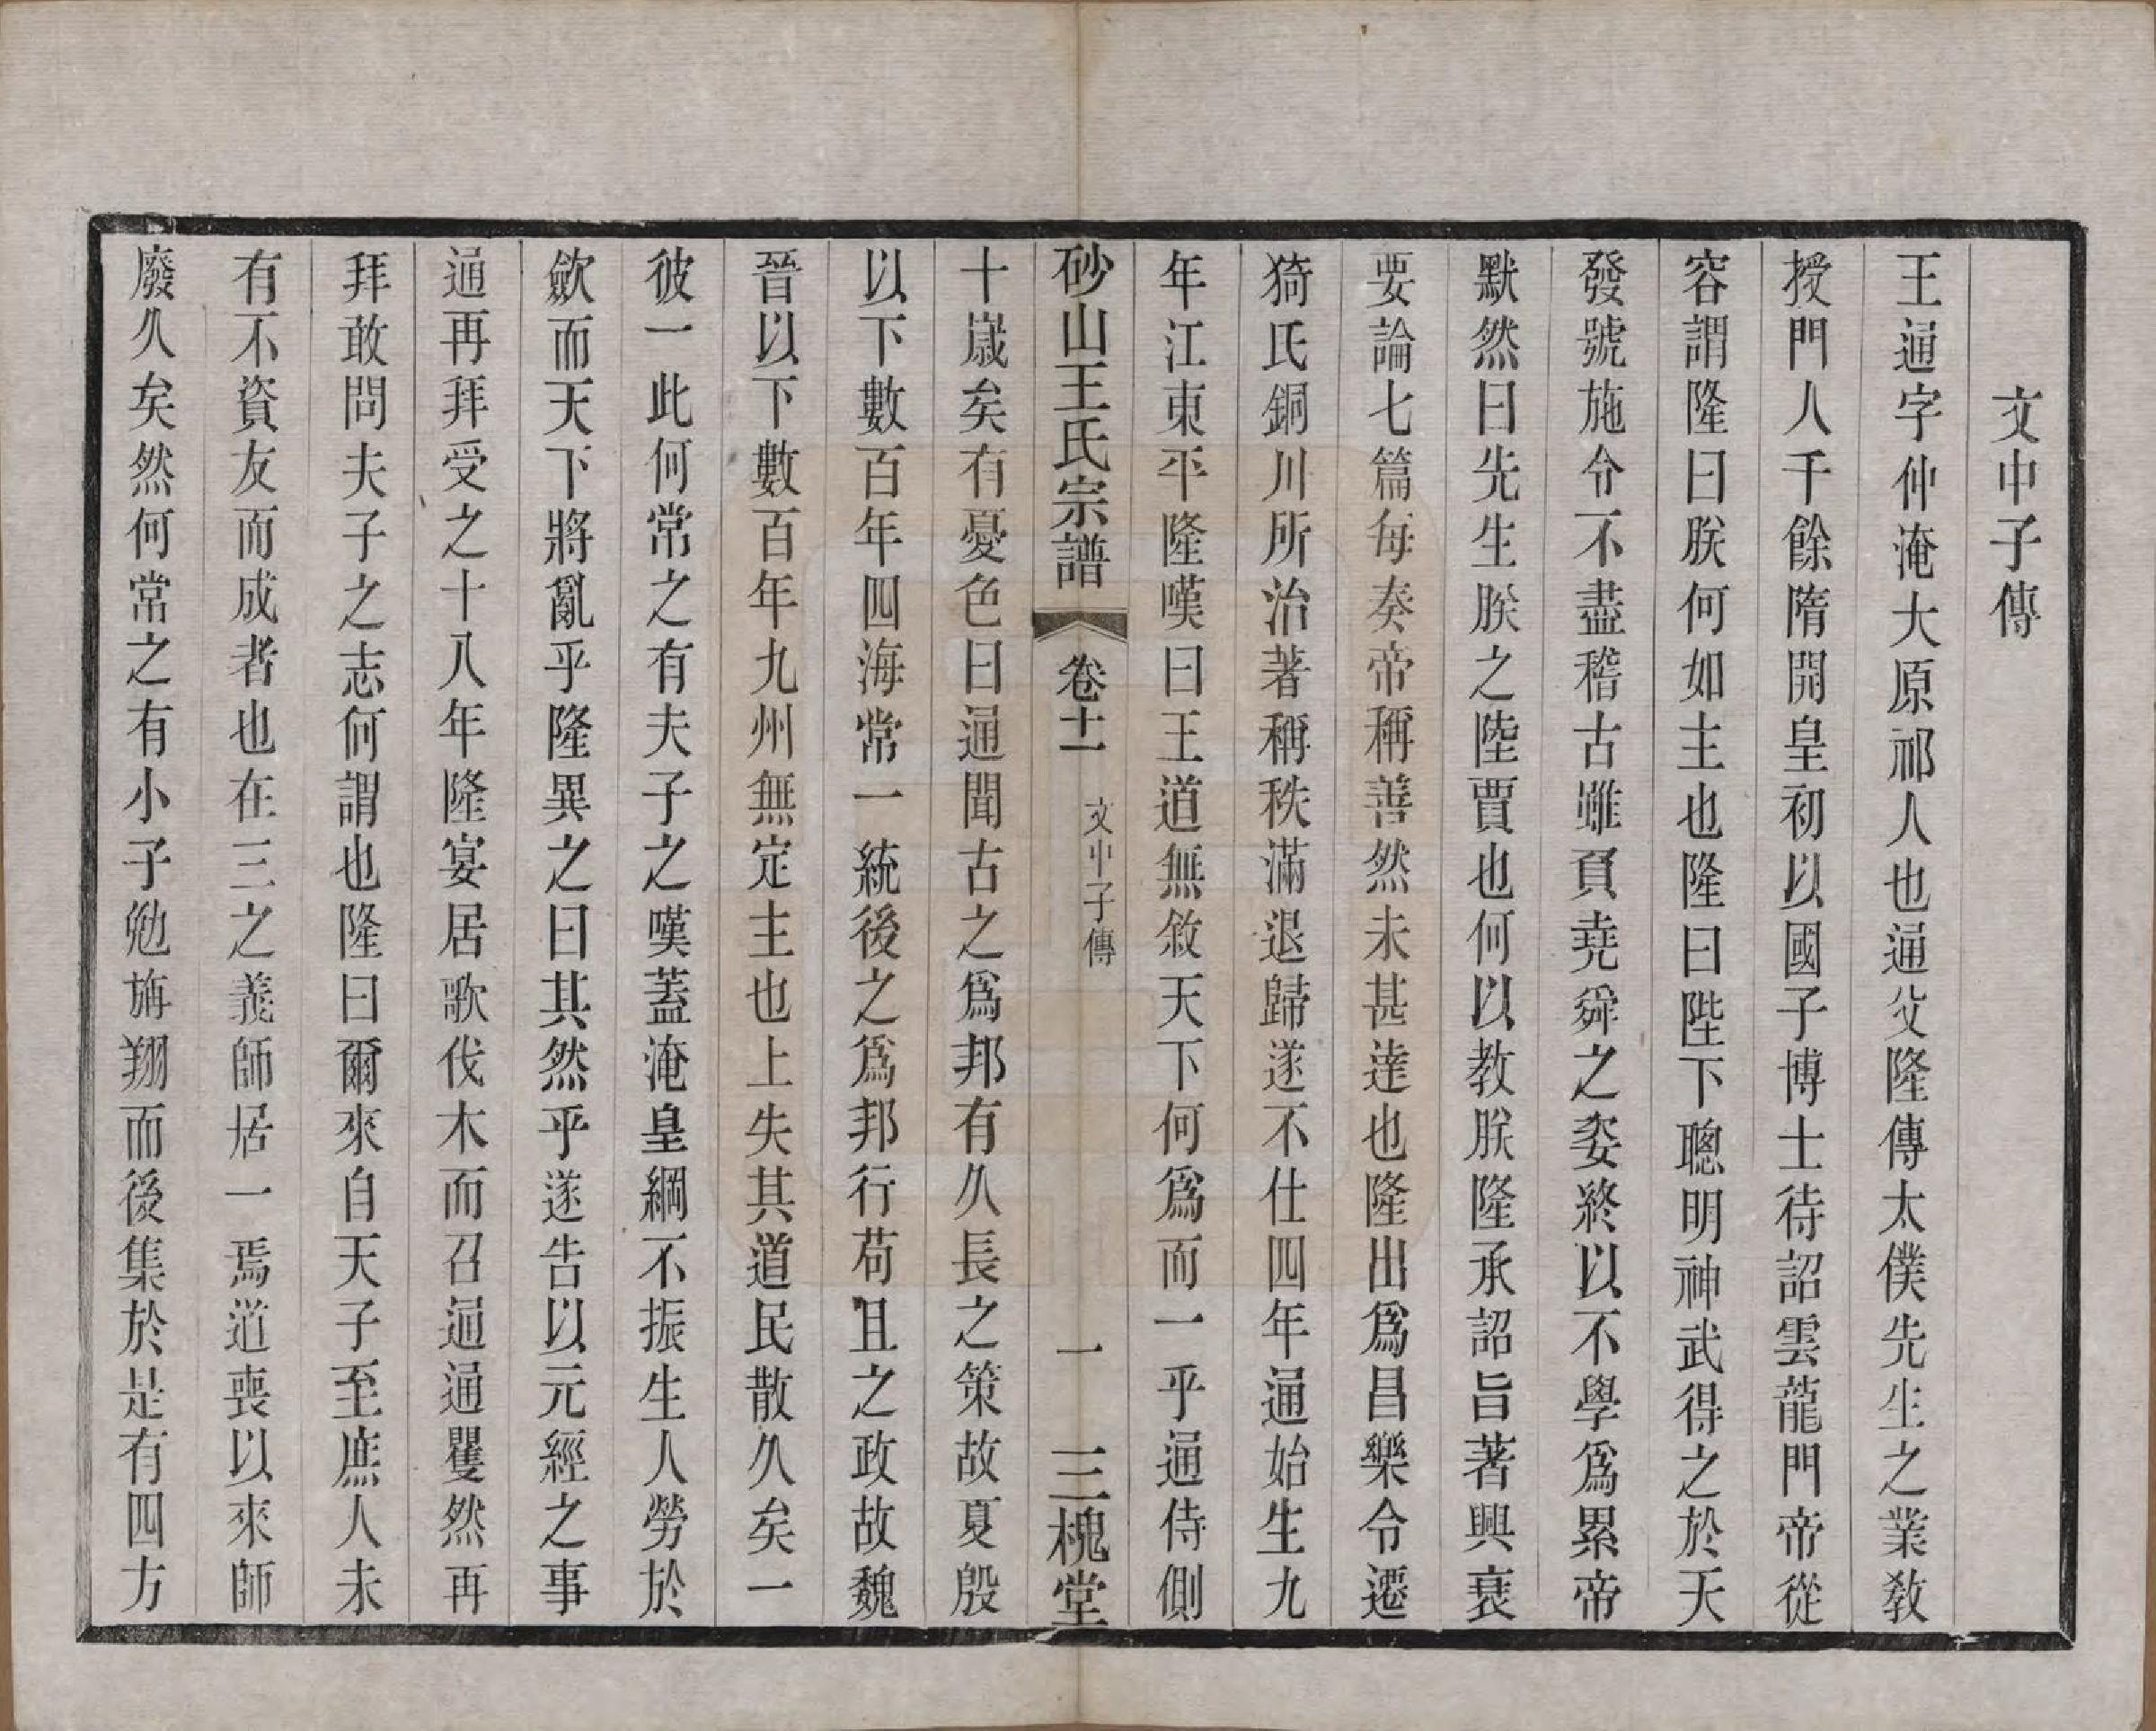 文中子傳
王通字仲淹大原祁人也通父隆傳太僕先生之業敎
授門人千餘隋開皇初以國子博士待詔雲龍門帝從
容謂隆曰朕何如主也隆曰陛下聰明神武得之於天
發號施令不盡稽古雖負堯舜之姿終以不學爲累帝
默然曰先生朕之陸賈也何以教朕隆承詔旨著興衰
要論七篇每奏帝稱善然未甚達也隆出爲昌樂令遷
猗氏銅川所治著稱秩滿退歸遂不仕四年通始生九
年江東平隆嘆曰王道無敘天下何爲而一乎通侍側
砂山王氏宗譜 卷十一 文中子傳 一 三槐堂
十嵗矣有憂色曰通聞古之爲邦有久長之策故夏殷
以下數百年四海常一統後之爲邦行苟且之政故魏
晉以下數百年九州無定主也上失其道民散久矣一
彼一此何常之有夫子之嘆蓋淹皇綱不振生人勞於
歛而天下將亂乎隆異之曰其然乎遂告以元經之事
通再拜受之十八年隆宴居歌伐木而召通通矍然再
拜敢問夫子之志何謂也隆曰爾來自天子至庶人未
有不資友而成者也在三之義師居一焉道喪以來師
廢久矣然何常之有小子勉旃翔而後集於是有四方